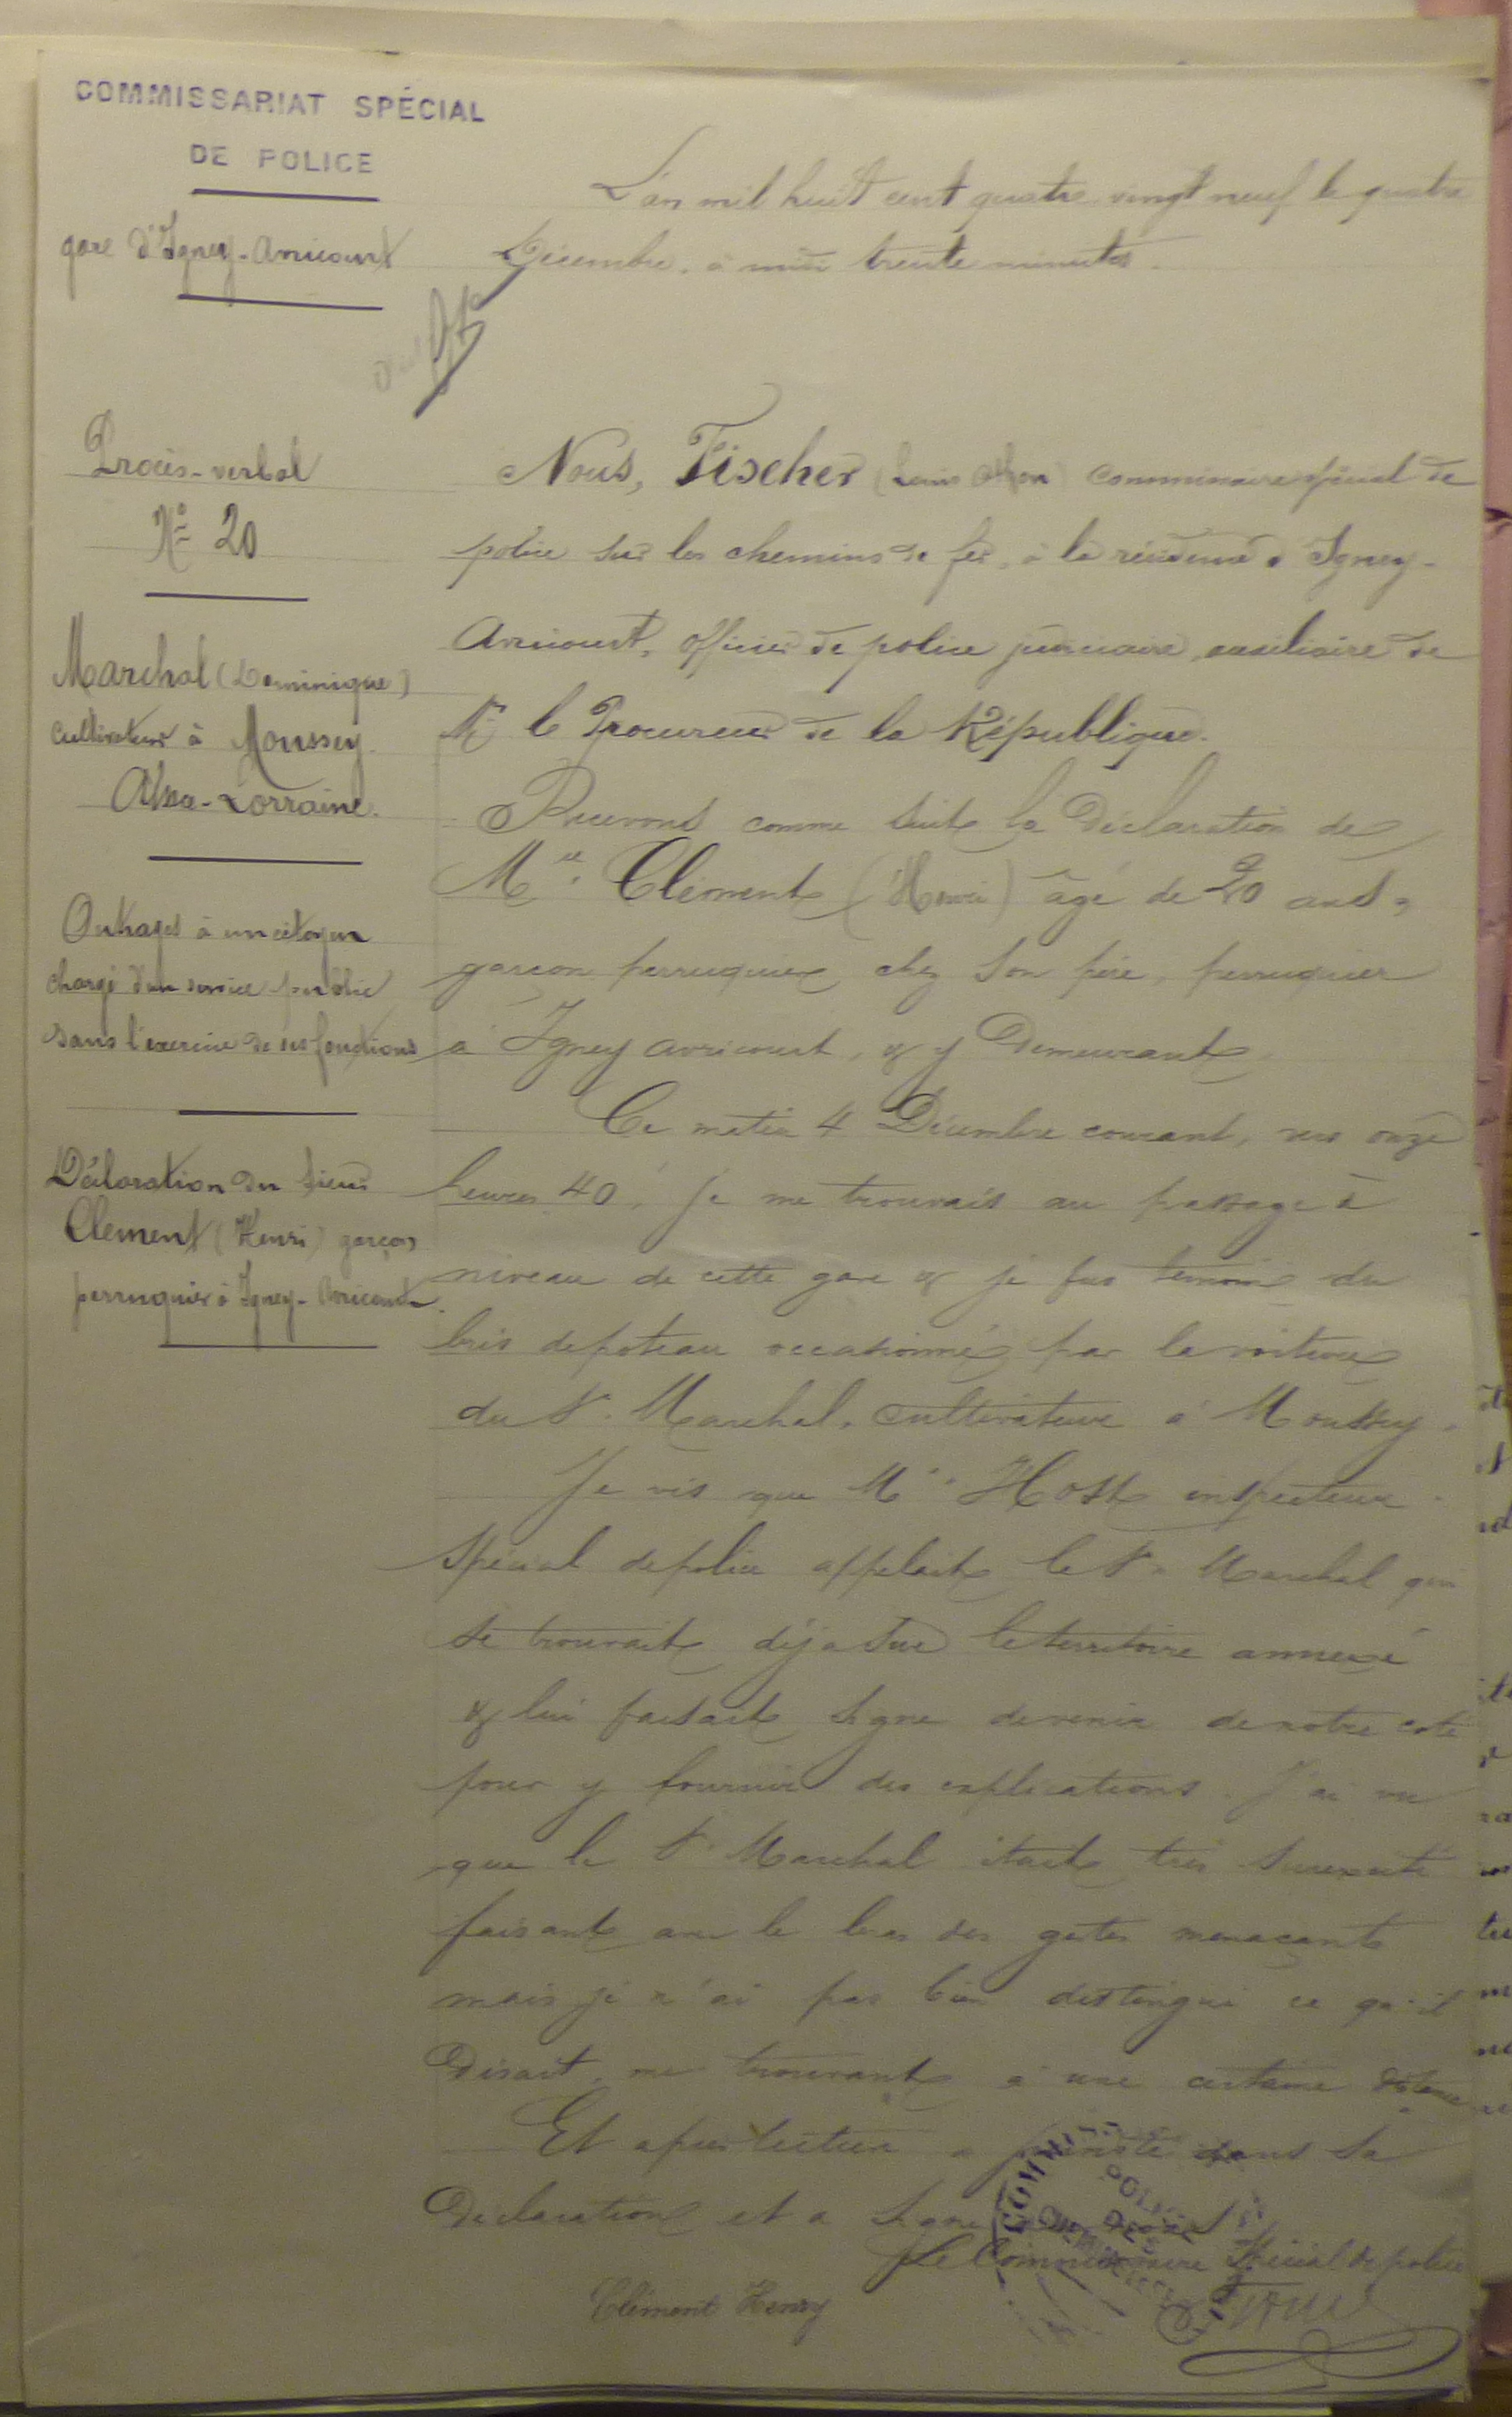 COMMISSARIAT SPÉCIAL
DE POLICE
gare d'Igney-Avricourt
Procès-verbal
No 20
Marchal (Dominique)
cultivateur à Moussey
Alsace-Lorraine.
Outrages à un citoyen
chargé d'un service public
dans l'exercice de ses fonctions
Déclaration du sieur
Clement (Henri) garçon
perruquier à Igney-Avricourt.
L'an mil huit cent quatre vingt neuf le quatre
Décembre, à midi trente minutes.
Nous, Fischer (Louis) commissaire spécial de
police sur les chemins de fer, à la résidence d'Igney-
Avricourt, officier de police judiciaire, auxiliaire de
Mr le Procureur de la République.
Recevons comme suit la Déclaration de
Mr Clément (Henri) âgé de 20 ans,
garçon perruquier chez son père, perruquier
à Igney avricourt, & y Demeurant.
Ce matin 4 Décembre courant, vers onze
heures 40, je me trouvais au passage à
niveau de cette gare & je fus témoin du
bris de poteau occasionné par la voiture
du S. Marchal, cultivateur à Moussey.
Je vis que Mr Host inspecteur
Spécial de police appelait le S. Marchal qui
se trouvait déja sur le territoire annexé
& lui faisait signe de venir de notre coté
pour y fournir des explications. J'ai vu
que le S. Marchal était très surexcité
faisant avec le bras des gestes menaçants
mais je n'ai pas bien distingué ce qu'il
Disait, me trouvant à une certaine distance
Et après lecture a persisté dans sa
Déclaration et a signé
Le Commissaire Spécial de police
Clément Henry